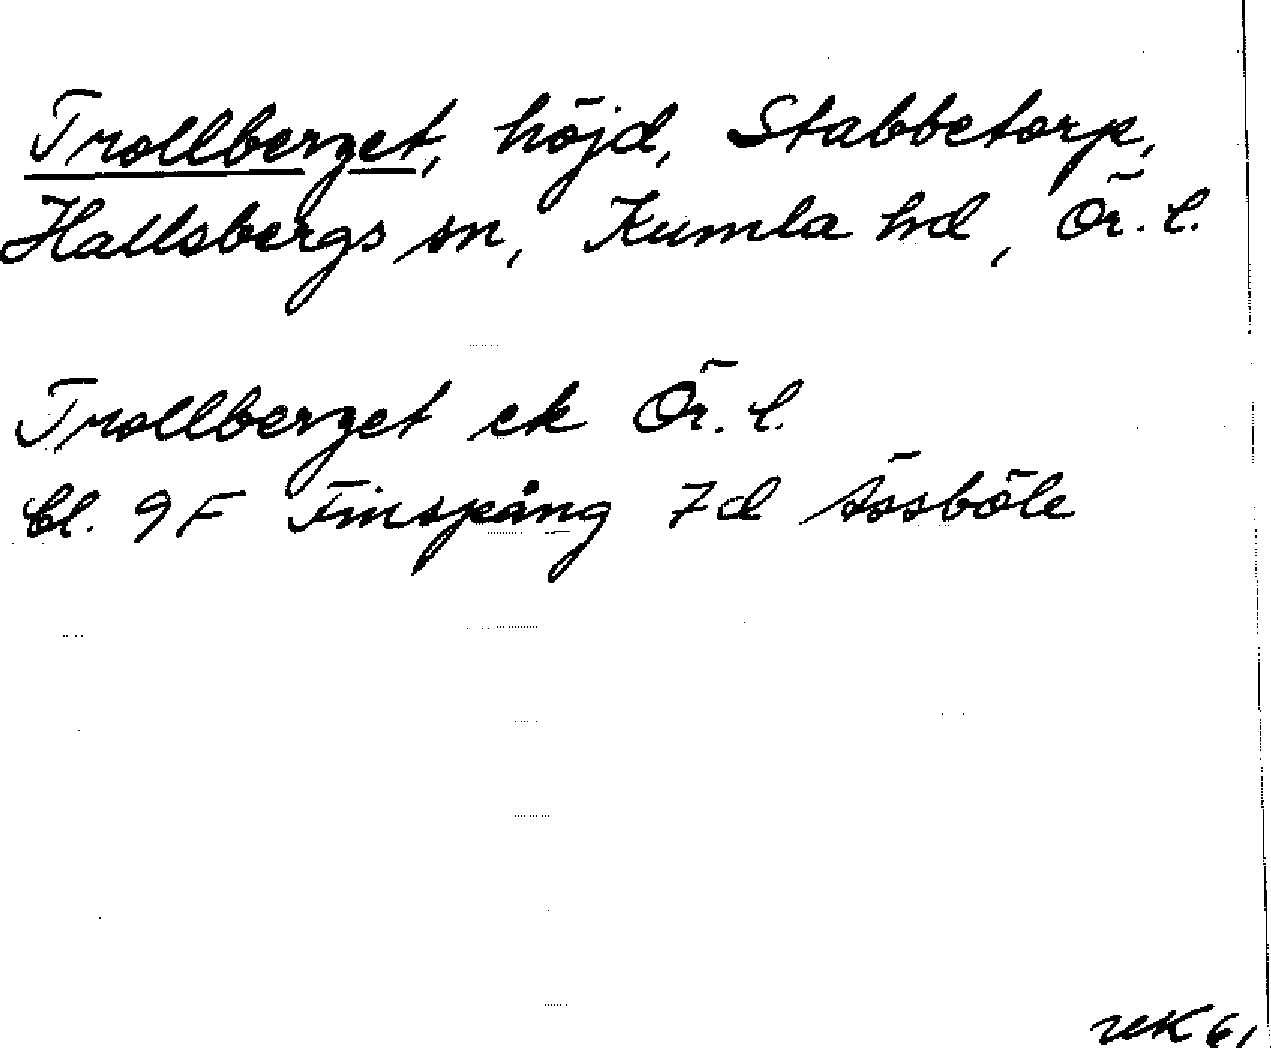 Trollberget, höjd, Stabbetorp,
Hallsbergs sn, Kumla hd, Ör. l.
Trollberget ek Ör. l.
bl. 9F Finspång 7d Åsböle
rek 61